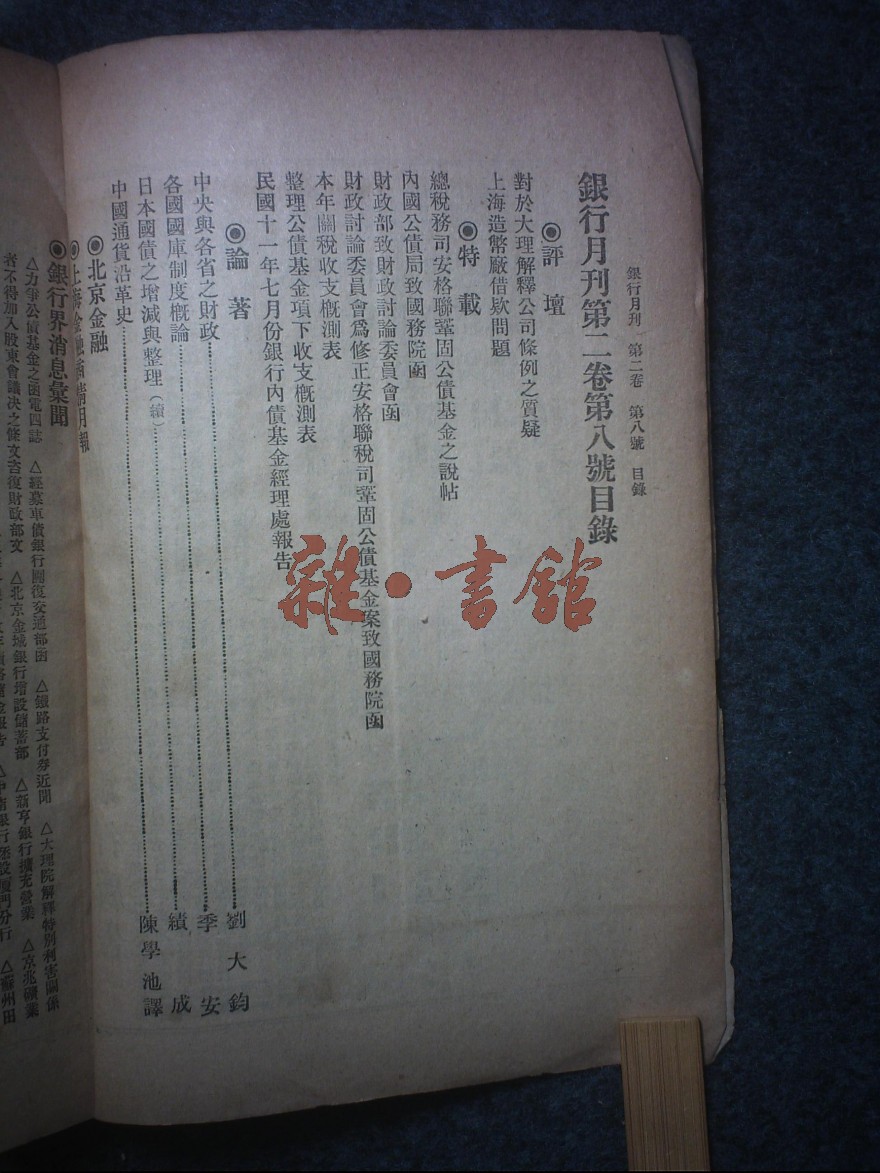 銀行月刊 第二卷 第八號 目錄
銀行月刊第二卷第八號目錄
◉評壇
對於大理解釋公司條例之質疑
上海造幣廠借欵問題
◉特載
總稅務司安格聯鞏固公債基金之說帖
內國公債局致國務院函
財政部致財政討論委員會函
財政討論委員會爲修正安格聯稅司鞏固公債基金案致國務院函
本年關稅收支槪測表
整理公債基金項下收支槪測表
民國十一年七月份銀行內債基金經理處報告
◉論著
中央與各省之財政 劉大鈞
各國國庫制度概論 季安
日本國債之增減與整理(續) 績成
中國通貨沿革史 陳學池譯
◉北京金融
◉上海金融商情月報
◉銀行界消息彙聞
△力爭公債基金之函電四誌 △經募車債銀行團復交通部函 △鐵路支付券近聞 △大理院解釋特別利害關係
者不得加入股東會議決之條文咨復財政部文 △北京金城銀行增設儲蓄部 △新亨銀行擴充營業 △京兆礦業
銀行添設廈門分行 △蘇州田
雜·書館